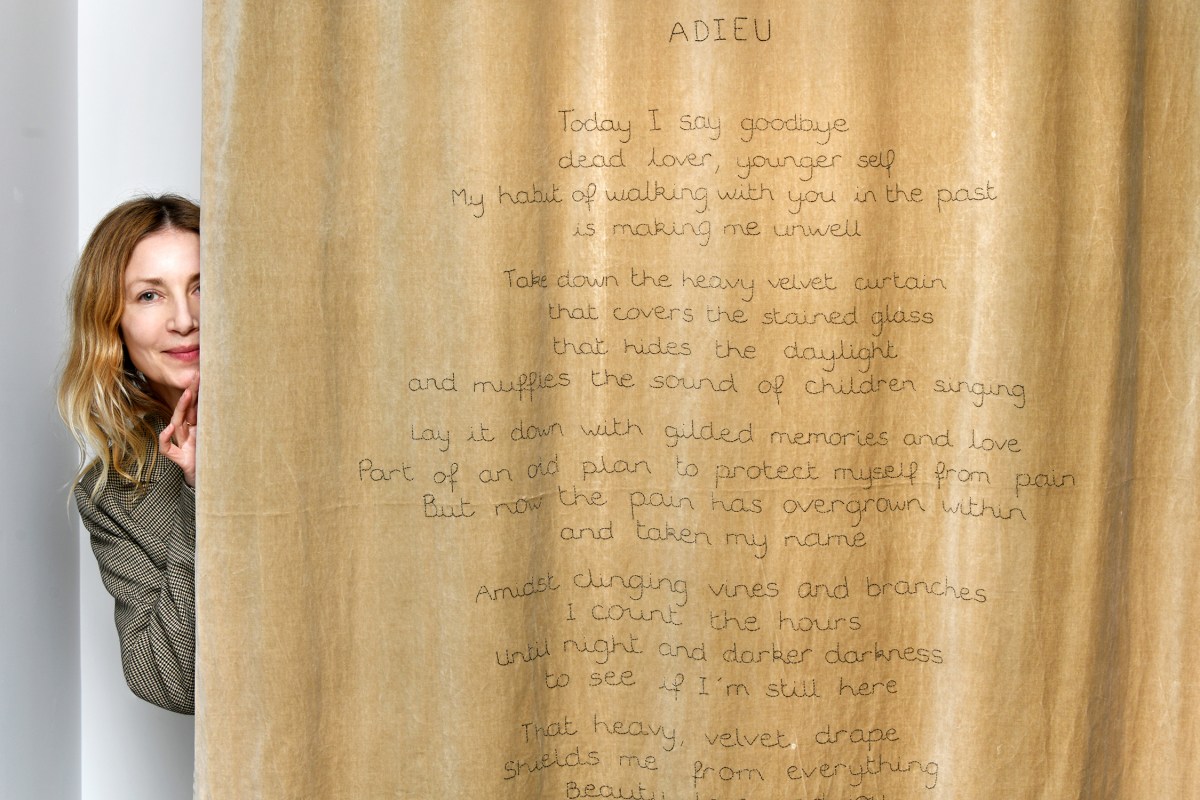 ADIEU
Today I say goodbye
dead lover, younger self
My habit of walking with you in the past
is making me unwell
Take down the heavy velvet curtain
that covers the stained glass
that hides the daylight
and muffles the sound of children singing
Lay it down with gilded memories and love
Part of an old plan to protect myself from pain
But now the pain has overgrown within
and taken my name
Amidst clinging vines and branches
I count the hours
until night and darker darkness
to see if I'm still here
That heavy, velvet, drape
Shields me from everything
Beauty